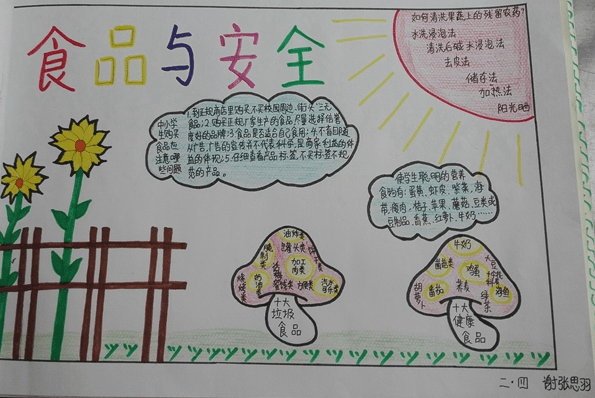 食品与安全
如何清洗果蔬上的残留农药?
水洗浸泡法
清洗后碱水浸泡法
去皮法
储存法
加热法
阳光晒
中小学
生购买
食品应
注意哪
些问题
1.到正规商店里购买,不买校园周边、街头"三无
食品;2.购买正规厂家生产的食品,尽量选择信誉
度好的品牌;3.食品是否适合自己食用;4.不盲目随
从广告,广告的宣传并不代表科学,是商家利益的体
5.仔细查看产品标签,不买标签不规
范的产品。
使学生聪明的营养
食物有:蛋黄、虾皮、紫菜、海
带、瘦肉、桔子、苹果、蘑菇、豆类或
豆制品、香蕉、红萝卜、牛奶……
油炸类
罐头类
加工
肉类
烧烤类
十大
垃圾
食品
牛奶
菌菇类
鸡蛋
番茄
荞麦
胡萝卜
绿茶
十大
健康
食品
二·四 谢张思羽